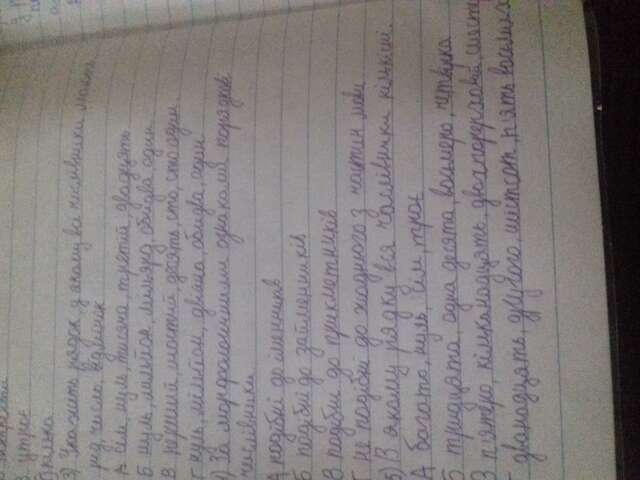 В утриє
3) Укажіть рядок, у якому всі числівники мають
рід, число, відмінок
А сім, нуль, тисяча, третій, двадцять
Б нуль, мільйон, мільярд, обидва, один
В перший, шостий, десять, сто, сто один
Г нуль, мільйон, двійка, обидва, один
4) За морфологічними ознаками порядкові
числівники
А подібні до іменників
Б подібні до займенників
В подібні до прикметників
Г не подібні до жодної з частин мови
5) В якому рядку всі числівники кількісні.
А багато, нуль, сім, троє
Б тридцята, одна десята, восьмеро, четвірка
В п'ятеро, кільканадцять, двохповерховий, шість
Г дванадцять, другого, шістсот, п'ять восьмих